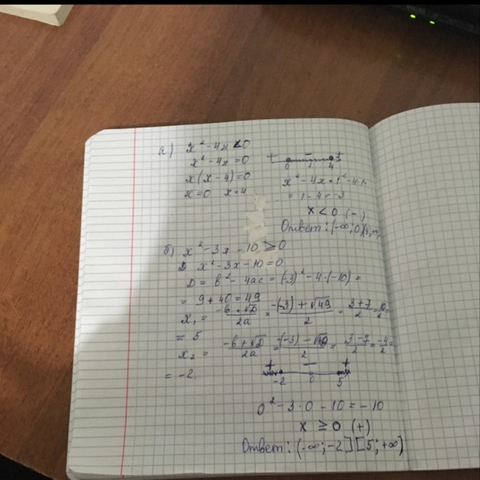 а) x² - 4x < 0
x² - 4x = 0
x(x - 4) = 0
x = 0 x = 4
+ − +
0 1 4
x² - 4x = 1² - 4·1
= 1 - 4 = -3
x < 0 (-)
Ответ: (-∞; 0)
б) x² - 3x - 10 ≥ 0
x² - 3x - 10 = 0
D = b² - 4ac = (-3)² - 4·(-10) =
= 9 + 40 = 49
x₁ = -b + √D / 2a = -(-3) + √49 / 2 = 3 + 7 / 2 = 10 / 2
= 5
x₂ = -b + √D / 2a = -(-3) - √49 / 2 = 3 - 7 / 2 = -4 / 2
= -2
+ − +
-2 0 5
0² - 3·0 - 10 = -10
x ≥ 0 (+)
Ответ: (-∞; -2] [5; +∞)